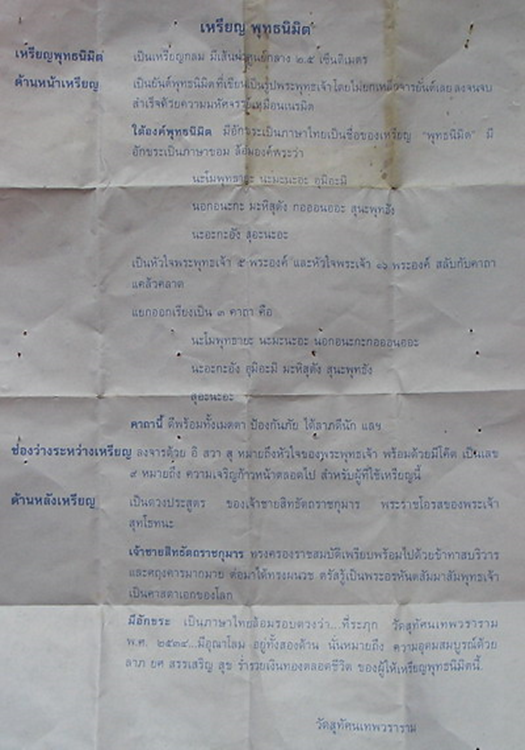 เหรียญ พุทธนิมิต
เหรียญพุทธนิมิต เป็นเหรียญกลม มีเส้นผ่าศูนย์กลาง ๒.๕ เซ็นติเมตร
ด้านหน้าเหรียญ เป็นยันต์พุทธนิมิตที่เขียนเป็นรูปพระพุทธเจ้าโดยไม่ยกเหล็กจารยันต์เลย ลงจนจบ
สำเร็จด้วยความมหัศจรรย์เหมือนเนรมิต
ใต้องค์พุทธนิมิต มีอักขระเป็นภาษาไทยเป็นชื่อของเหรียญ "พุทธนิมิต" มี
อักขระเป็นภาษาขอม ล้อมองค์พระว่า
นะโมพุทธายะ นะมะนะอะ อุมิอะมิ
นอกอนะกะ มะหิสุตัง กอออนอะอะ สุนะพุทธัง
นะอะกะอัง สุอะนะอะ
เป็นหัวใจพระพุทธเจ้า ๕ พระองค์ และหัวใจพระเจ้า ๑๖ พระองค์ สลับกับคาถา
แคล้วคลาด
แยกออกเรียงเป็น ๓ คาถา คือ
นะโมพุทธายะ นะมะนะอะ นอกอนะกะกอออนอะอะ
นะอะกะอัง อุมิอะมิ มะหิสุตัง สุนะพุทธัง
สุอะนะอะ
คาถานี้ ดีพร้อมทั้งเมตตา ป้องกันภัย ได้ลาภดีนัก แลฯ
ช่องว่างระหว่างเหรียญ ลงจารด้วย อิ สวา สุ หมายถึงหัวใจของพระพุทธเจ้า พร้อมด้วยมีโค๊ต เป็นเลข
๙ หมายถึง ความเจริญก้าวหน้าตลอดไป สำหรับผู้ที่ใช้เหรียญนี้
ด้านหลังเหรียญ เป็นดวงประสูตร ของเจ้าชายสิทธัตถราชกุมาร พระราชโอรสของพระเจ้า
สุทโธทนะ
เจ้าชายสิทธัตถราชกุมาร ทรงครองราชสมบัติเพรียบพร้อมไปด้วยข้าทาสบริวาร
และคฤงคารมากมาย ต่อมาได้ทรงผนวช ตรัสรู้เป็นพระอรหันตสัมมาสัมพุทธเจ้า
เป็นศาสดาเอกของโลก
มีอักขระ เป็นภาษาไทยล้อมรอบดวงว่า...ที่ระฦก วัดสุทัศนเทพวราราม
พ.ศ. ๒๕๓๔...มีอุณาโลม อยู่ทั้งสองด้าน นั่นหมายถึง ความอุดมสมบูรณ์ด้วย
ลาภ ยศ สรรเสริญ สุข ร่ำรวยเงินทองตลอดชีวิต ของผู้ใช้เหรียญพุทธนิมิตนี้.
วัดสุทัศนเทพวราราม